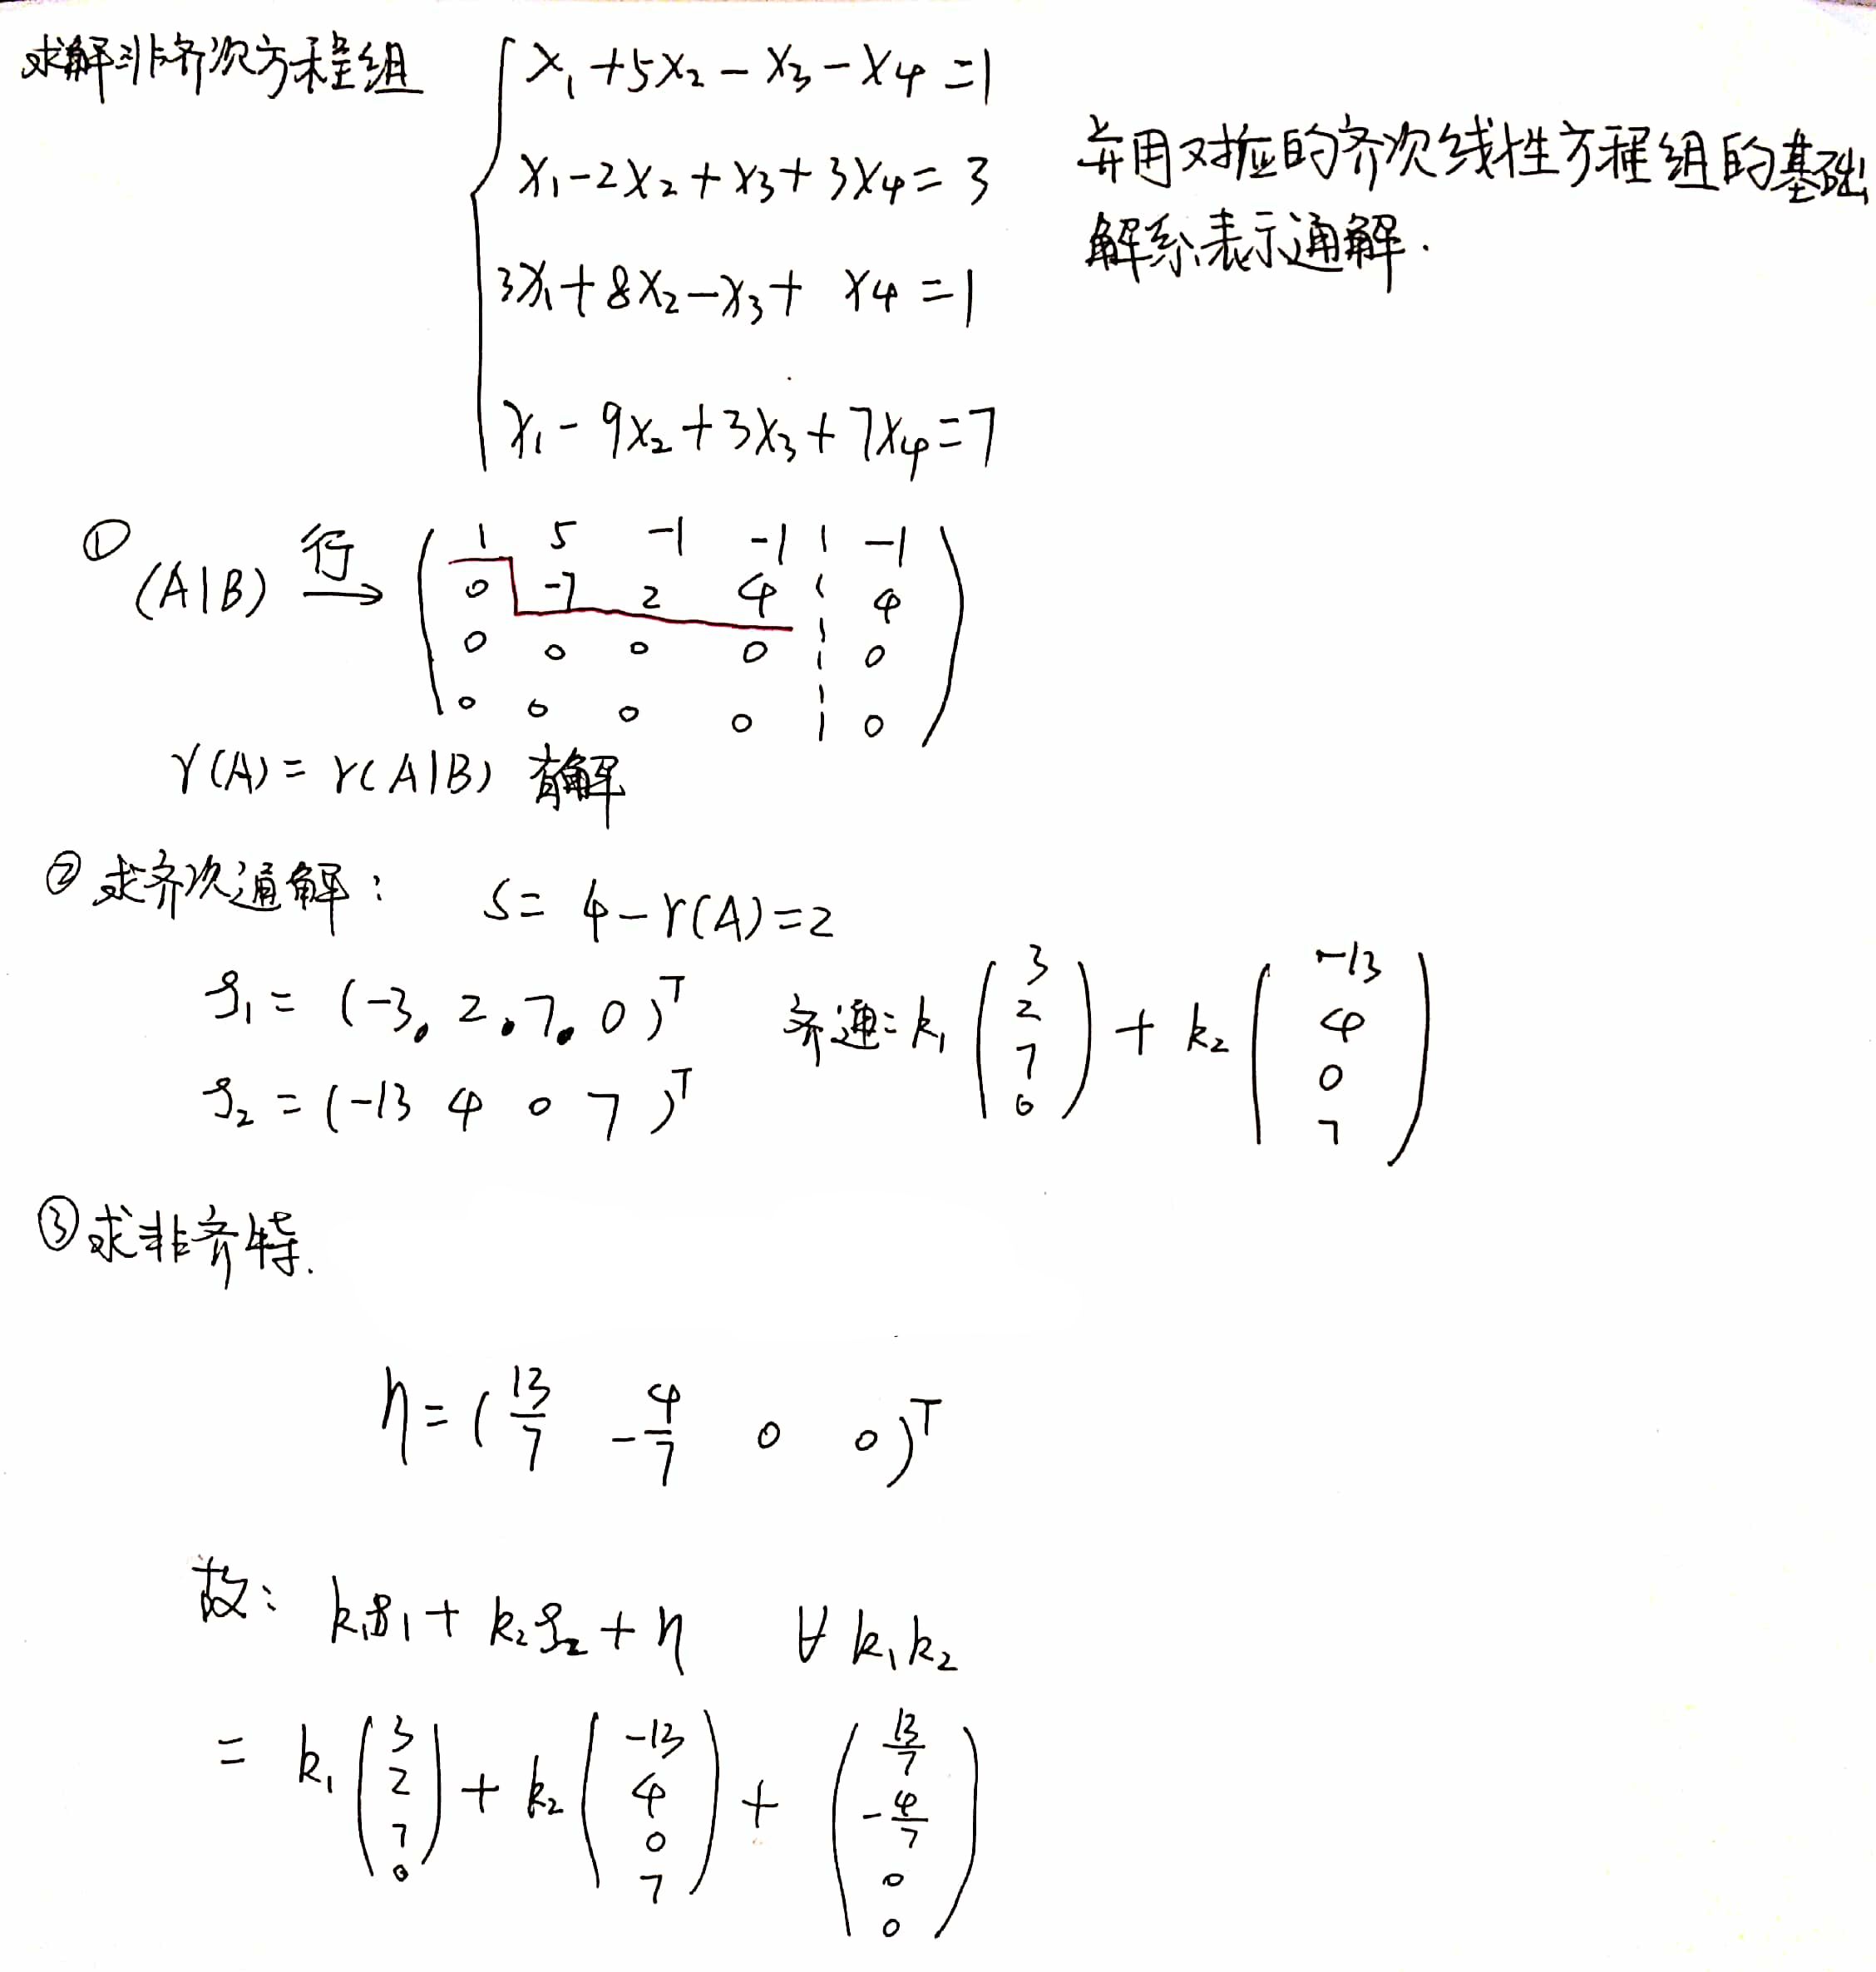 求解非齐次方程组
x₁+5x₂-x₃-x₄=1
x₁-2x₂+x₃+3x₄=3
3x₁+8x₂-x₃+x₄=1
x₁-9x₂+3x₃+7x₄=7
并用对应的齐次线性方程组的基础
解系表示通解.
① (A|B) 行→
1 5 -1 -1 | -1
0 -7 2 4 | 4
0 0 0 0 | 0
0 0 0 0 | 0
r(A)=r(A|B) 有解
② 求齐次通解: S=4-r(A)=2
ξ₁=(-3, 2, 7, 0)ᵀ 齐通: k₁(3 2 7 0)+k₂(-13 4 0 7)
ξ₂=(-13 4 0 7)ᵀ
③ 求非齐特.
η=(13/7 -4/7 0 0)ᵀ
故: k₁ξ₁+k₂ξ₂+η ∀k₁k₂
=k₁(3 2 7 0)+k₂(-13 4 0 7)+(13/7 -4/7 0 0)